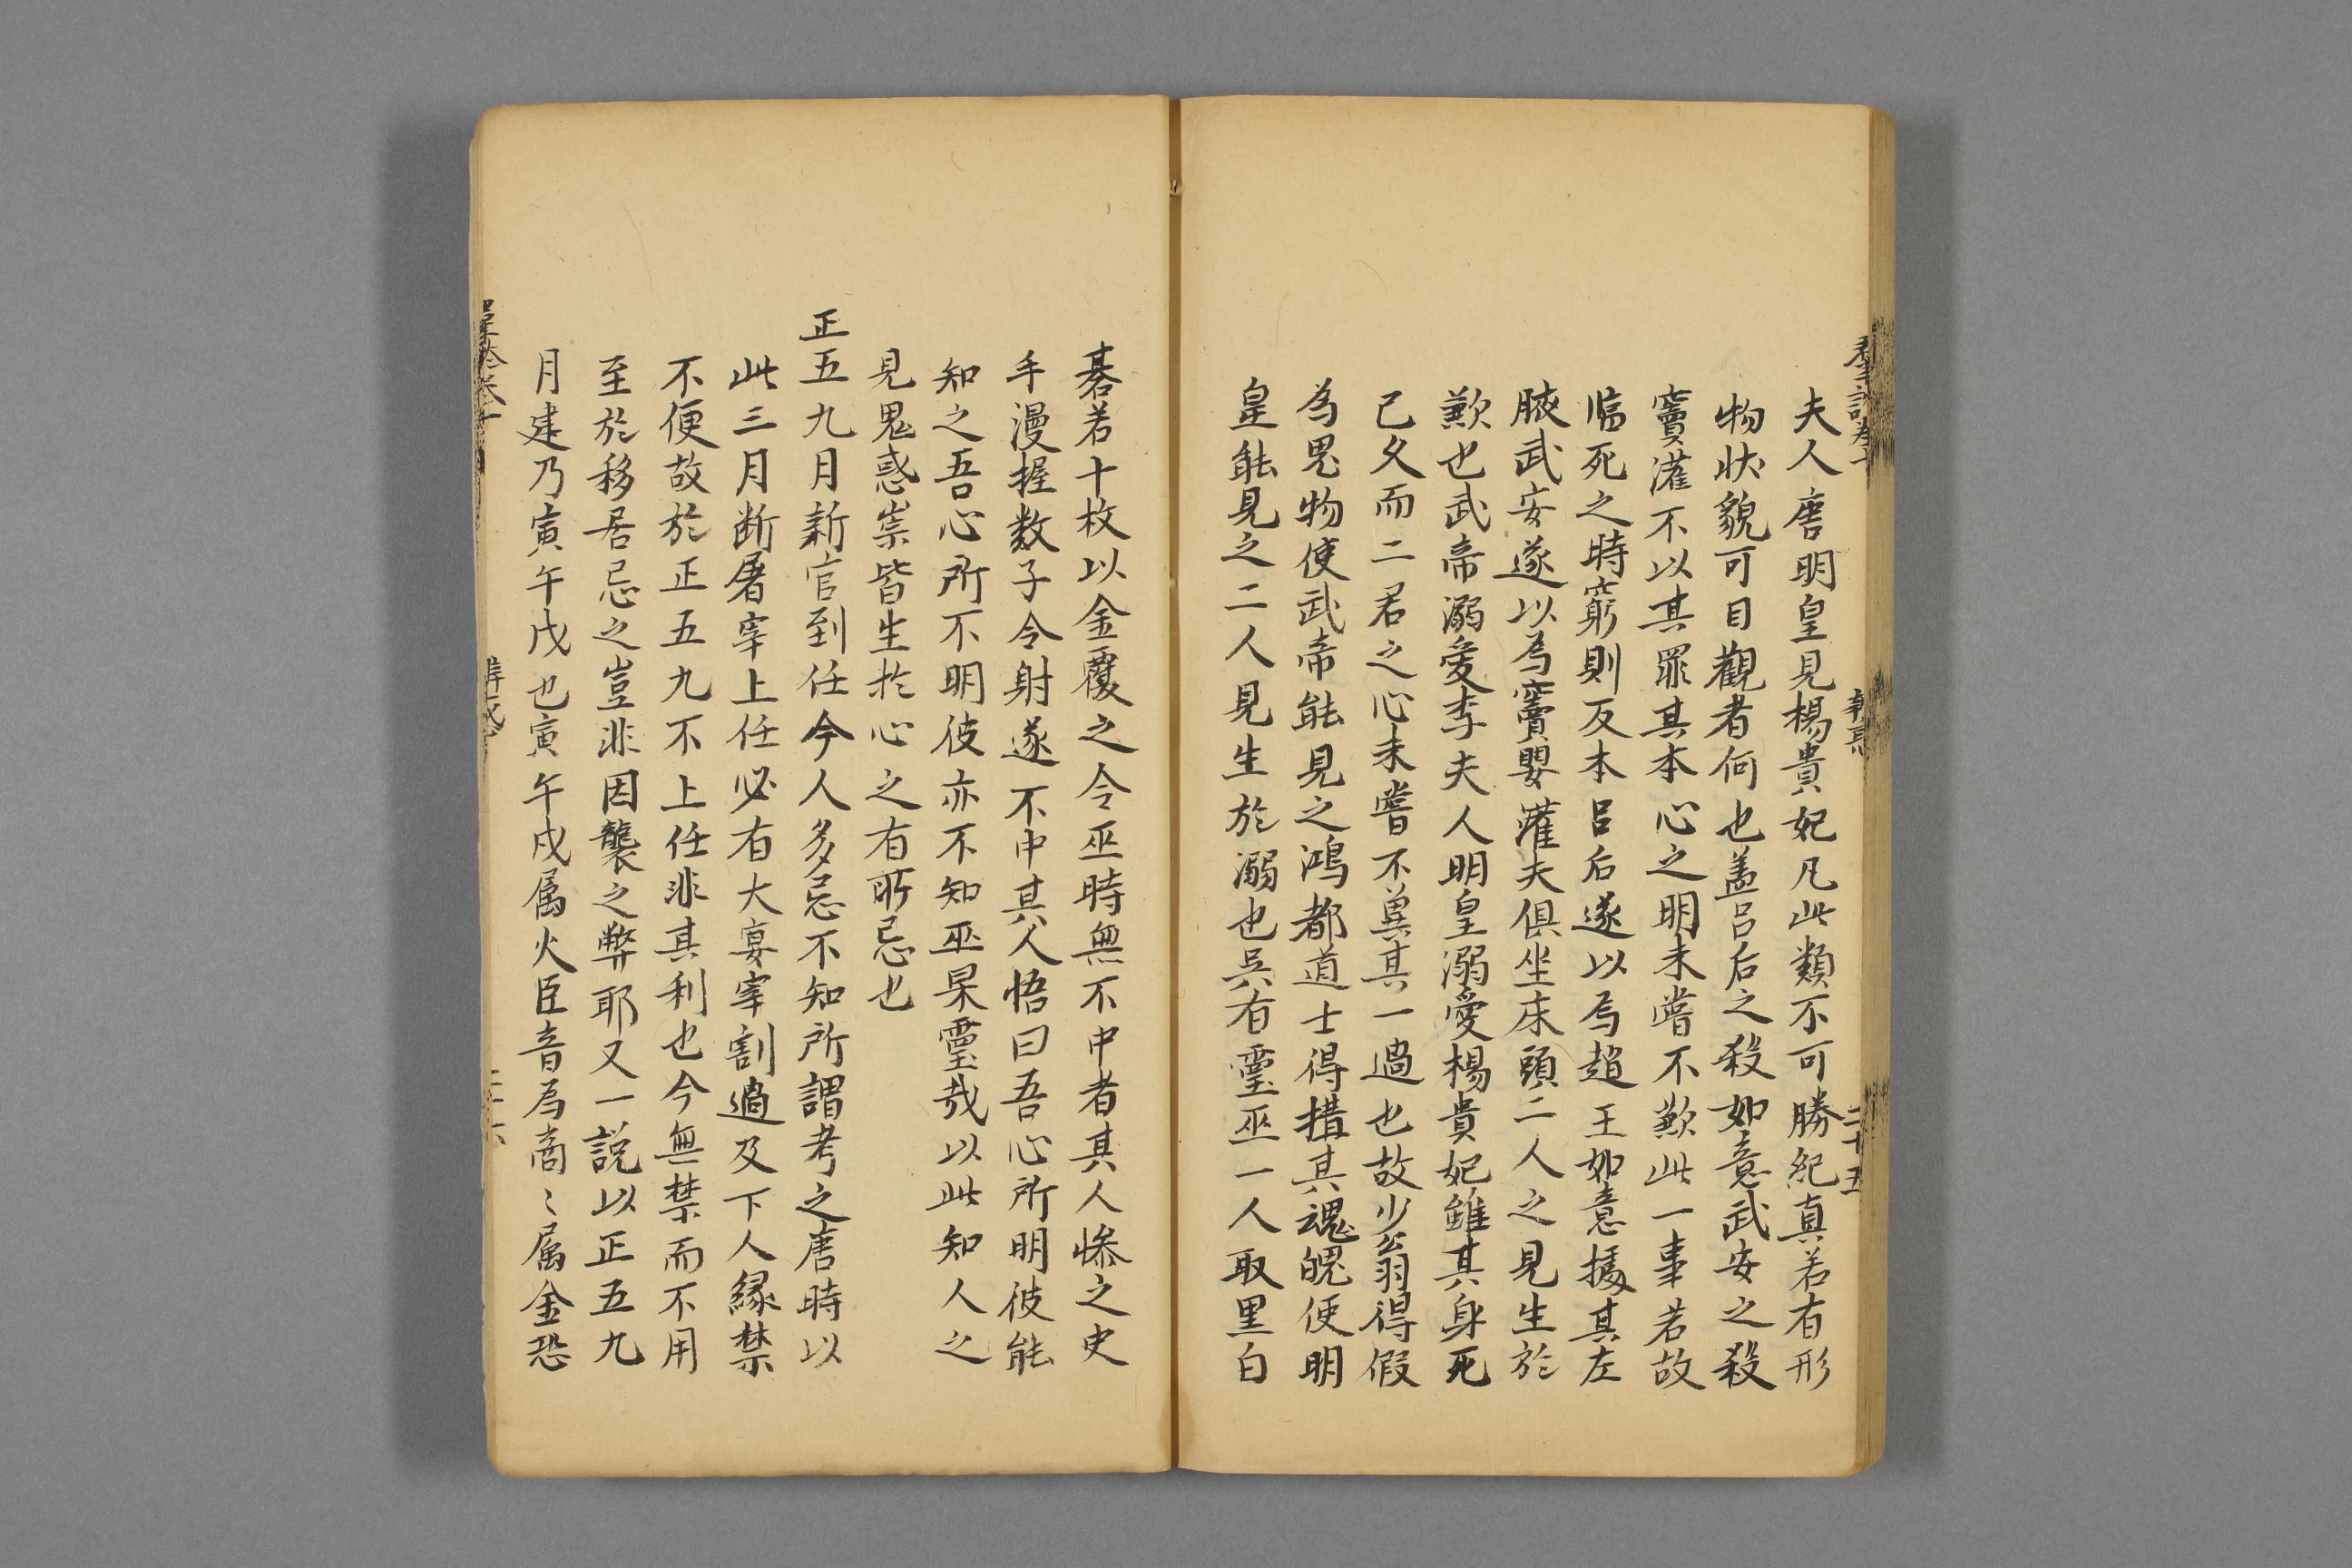 夫人唐明皇見楊貴妃凡此類不可勝紀真若有形
物狀貌可目觀者何也盖呂后之殺如意武安之殺
竇灌不以其罪其本心之明未嘗不歉此一事若故
臨死之時窮則反本呂后遂以為趙王如意援其左
腋武安遂以為竇嬰灌夫俱坐床頭二人之見生於
歉也武帝溺愛李夫人明皇溺愛楊貴妃雖其身死
已久而二君之心未嘗不兾其一遇也故少翁得假
為鬼物使武帝能見之鴻都道士得措其魂魄使明
皇能見之二人見生於溺也吳有靈巫一人取黑白
碁若十枚以金覆之令巫時無不中者其人慘之史
手漫握数子令射遂不中其人悟曰吾心所明彼能
知之吾心所不明彼亦不知巫杲靈哉以此知人之
見鬼惑祟皆生於心之有所忌也
正五九月新官到任今人多忌不知所謂考之唐時以
此三月断屠宰上任必有大宴宰割過及下人緣禁
不便故於正五九不上任非其利也今無禁而不用
至於移居忌之豈非因襲之弊耶又一說以正五九
月建乃寅午戌也寅午戌属火臣音為啇〻属金恐
二十五